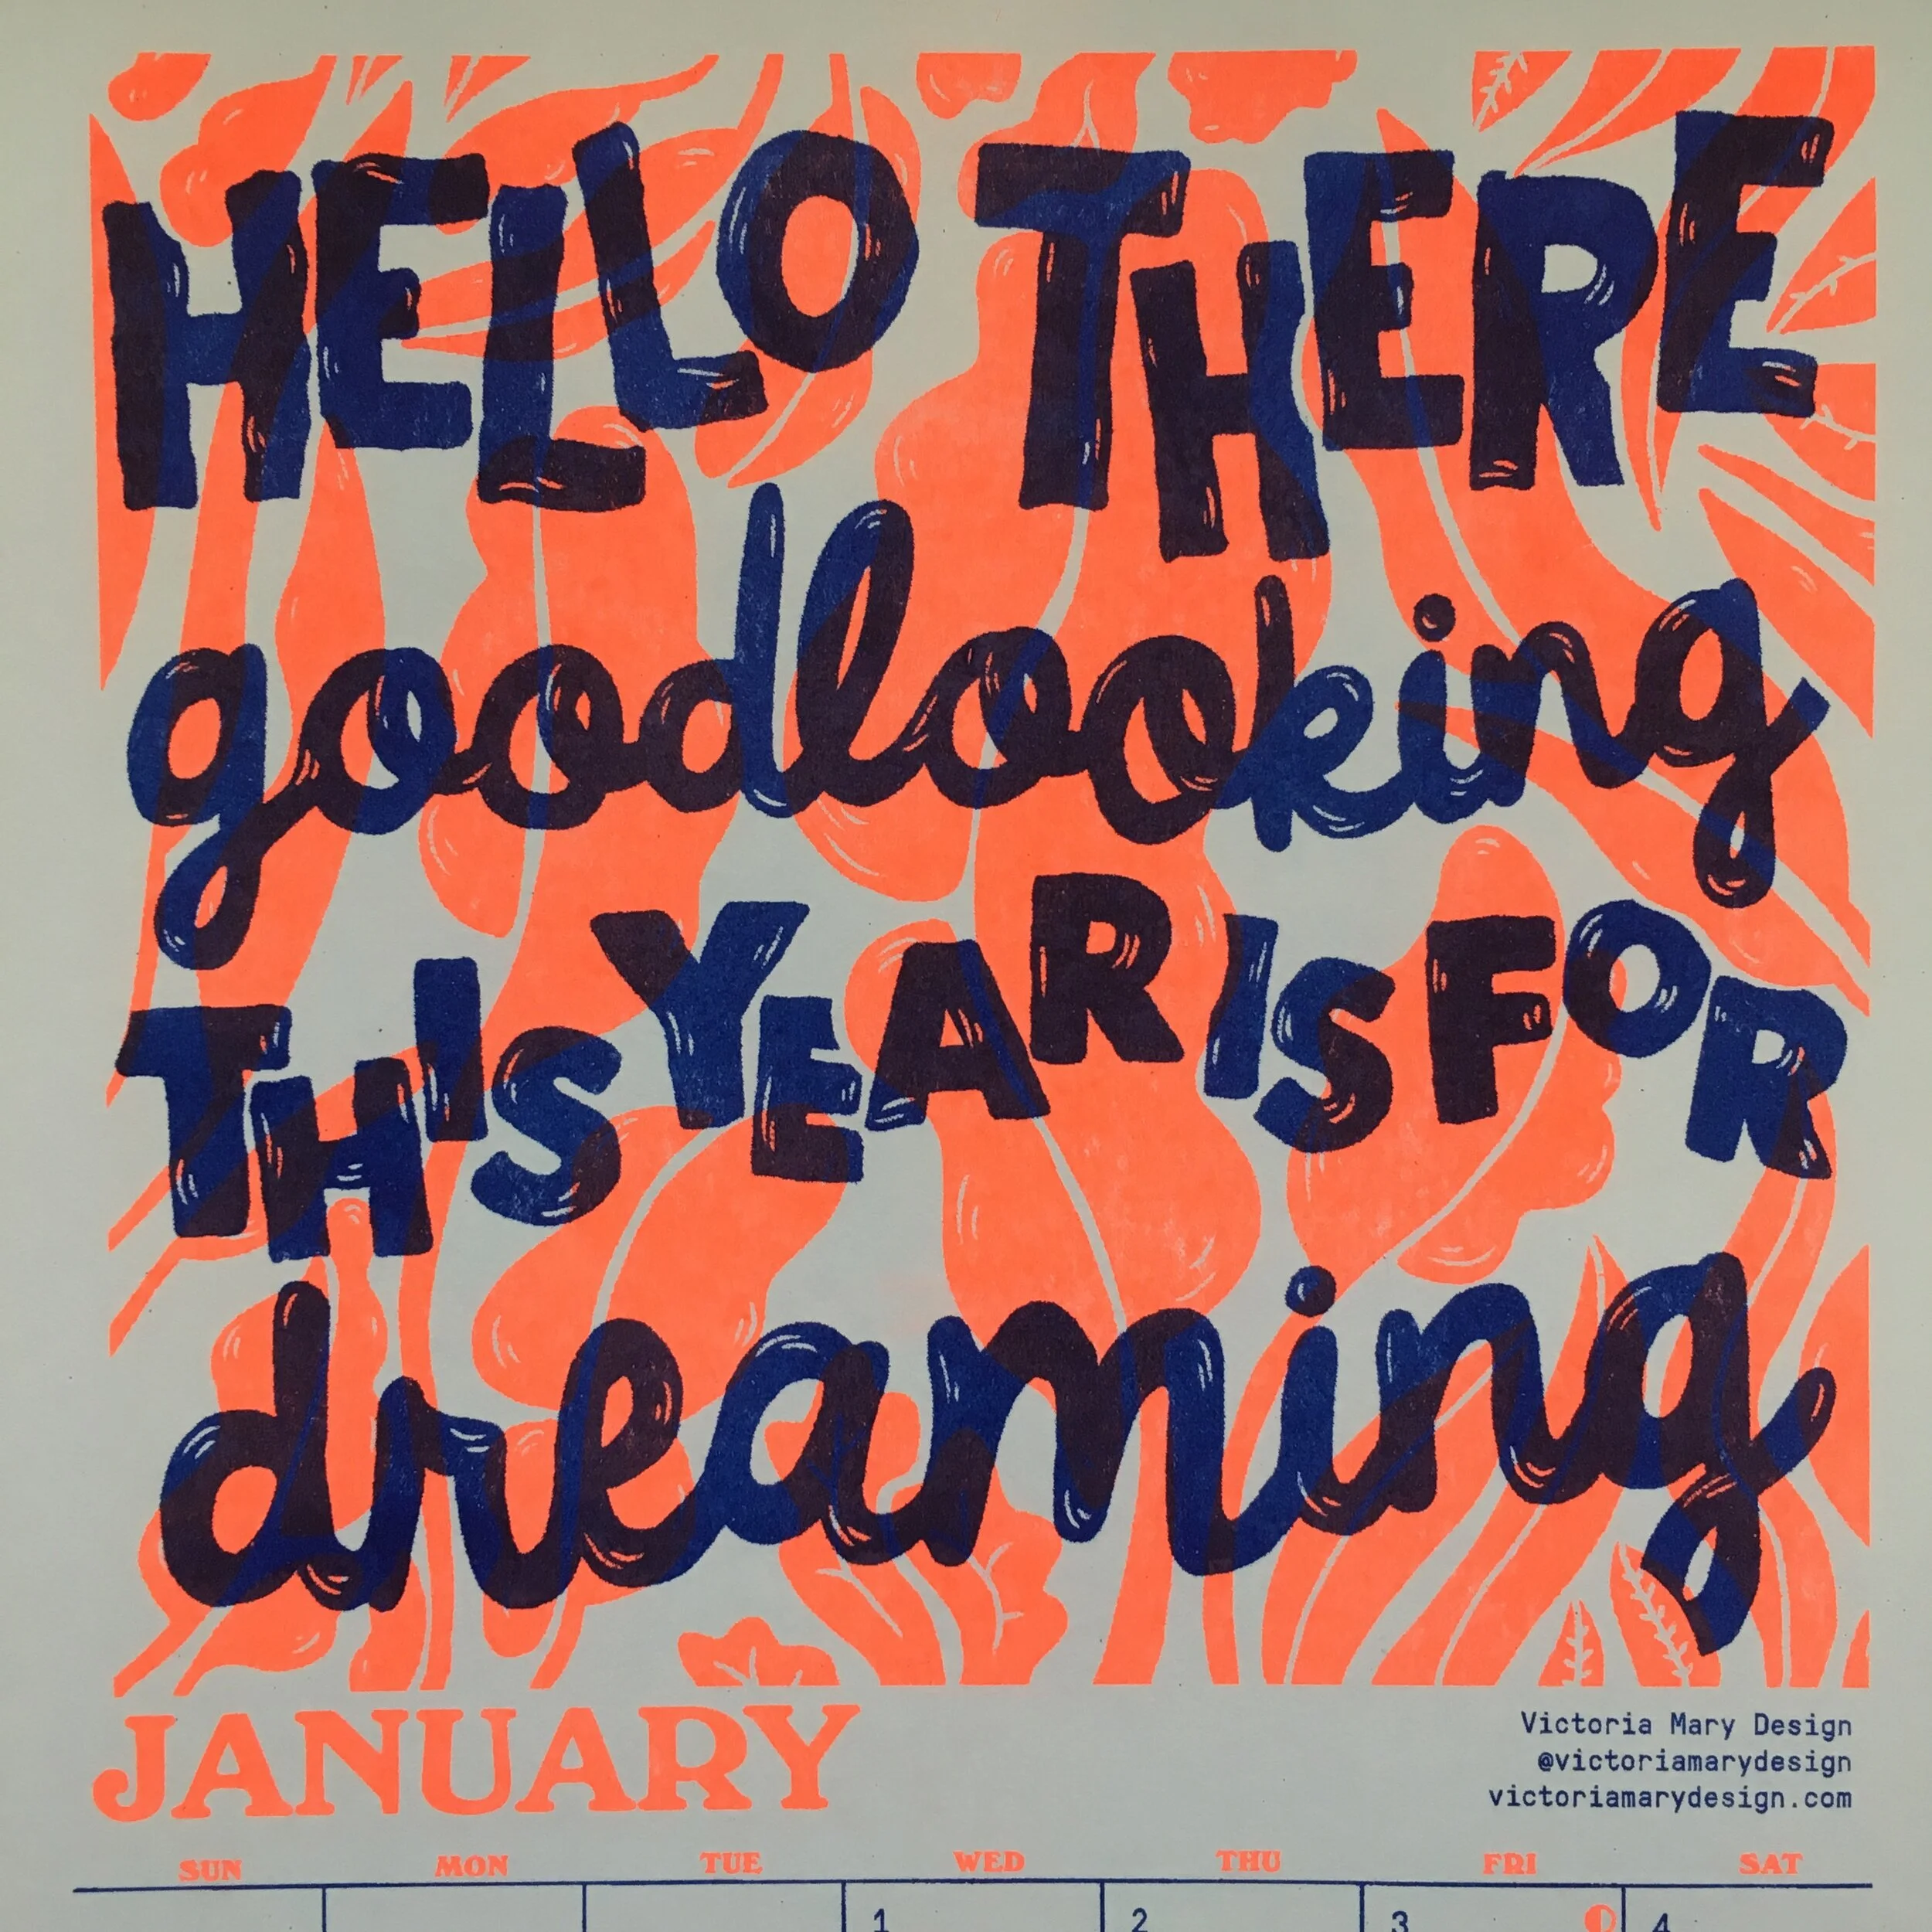 HELLO THERE
goodlooking
THIS YEAR IS FOR
dreaming
JANUARY
Victoria Mary Design
@victoriamarydesign
victoriamarydesign.com
SUN MON TUE WED THU FRI SAT
1 2 3 4